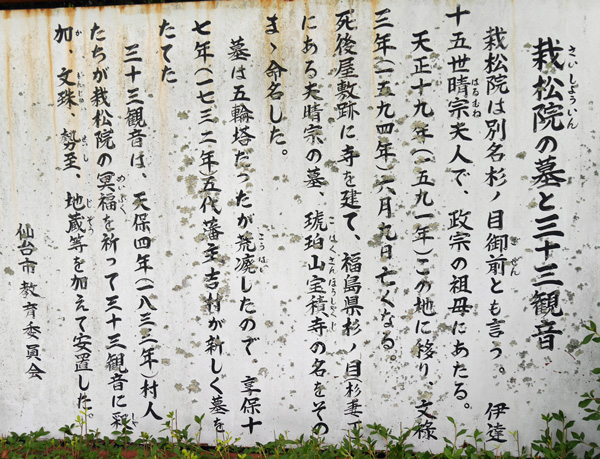 栽松院の墓と三十三観音
栽松院は別名杉ノ目御前とも言う。伊達
十五世晴宗夫人で、政宗の祖母にあたる。
天正十九年(一五九一年)この地に移り、文禄
三年(一五九四年)六月九日亡くなる。
死後屋敷跡に寺を建て、福島県杉ノ目(杉妻)
にある夫晴宗の墓、琥珀山宝積寺の名をその
まゝ命名した。
墓は五輪塔だったが荒廃したので、享保十
七年(一七三二年)五代藩主吉村が新しく墓を
たてた
三十三観音は、天保四年(一八三三年)村人
たちが栽松院の冥福を祈って三十三観音に釈
加、文珠、勢至、地蔵等を加えて安置した。
仙台市教育委員会